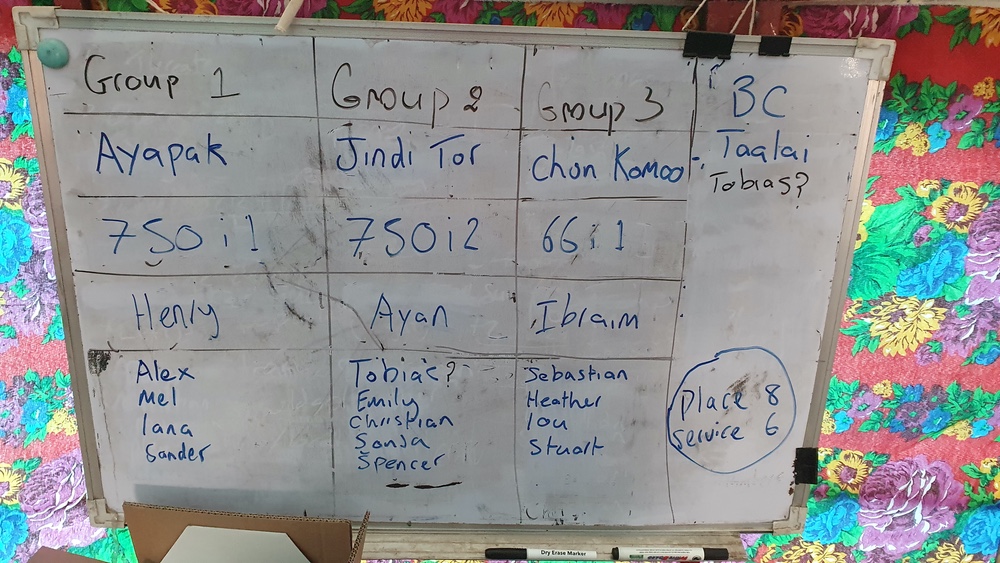 Group 1
Ayapak
750i1
Henry
Alex
Mel
Lana
Sander
Group 2
Jindi Tor
750i2
Ayan
Tobias?
Emily
Christian
Sonja
Spencer
Group 3
Chon Komoo
66i1
Ibraim
Sebastian
Heather
Lou
Stuart
BC
Taalai
Tobias?
Place 8
Service 6
Dry Erase Marker